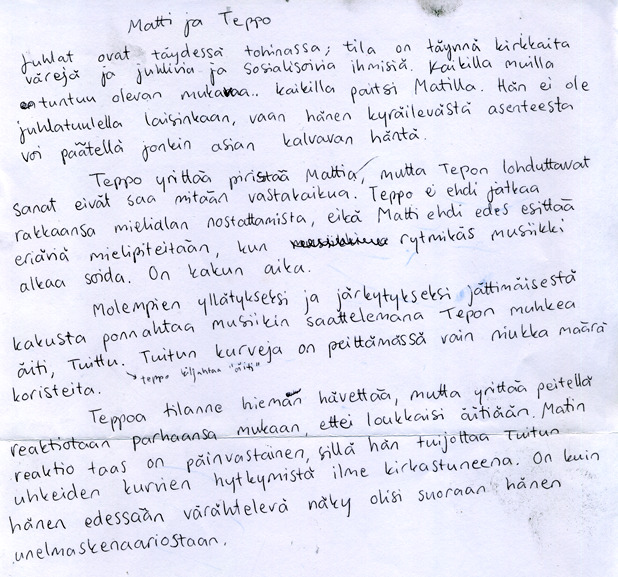 Matti ja Teppo
Juhlat ovat täydessä tohinassa; tila on täynnä kirkkaita
värejä ja juhlivia ja sosialisoivia ihmisiä. Kaikilla muilla
tuntuu olevan mukavaa.. kaikilla paitsi Matilla. Hän ei ole
juhlatuulella laisinkaan, vaan hänen kyräilevästä asenteesta
voi päätellä jonkin asian kalvavan häntä.
Teppo yrittää piristää Mattia, mutta Tepon lohduttavat
sanat eivät saa mitään vastakaikua. Teppo ei ehdi jatkaa
rakkaansa mielialan nostattamista, eikä Matti ehdi edes esittää
eriäviä mielipiteitään, kun rytmikäs musiikki
alkaa soida. On kakun aika.
Molempien yllätykseksi ja järkytykseksi jättimäisestä
kakusta ponnahtaa musiikin saattelemana Tepon muhkea
äiti, Tuittu. Tuitun kurveja on peittämässä vain niukka määrä
→ teppo kiljahtaa "äiti"
koristeita.
Teppoa tilanne hieman hävettää, mutta yrittää peitellä
reaktiotaan parhaansa mukaan, ettei loukkaisi äitiään. Matin
reaktio taas on päinvastainen, sillä hän tuijottaa Tuitun
uhkeiden kurvien hytkymistä ilme kirkastuneena. On kuin
hänen edessään värähtelevä näky olisi suoraan hänen
unelmaskenaariostaan.